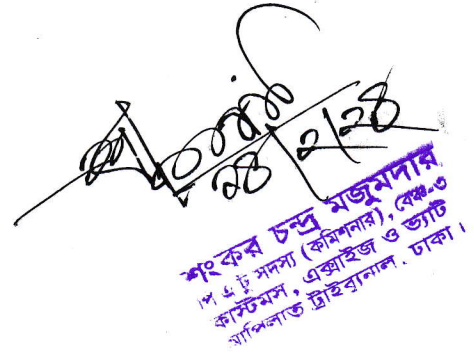 ২৪/২/২৪
শংকর চন্দ্র মজুমদার
সদস্য (কমিশনার), বেঞ্চ-৩
কাস্টমস, এক্সাইজ ও ভ্যাট
ট্রাইব্যুনাল, ঢাকা।